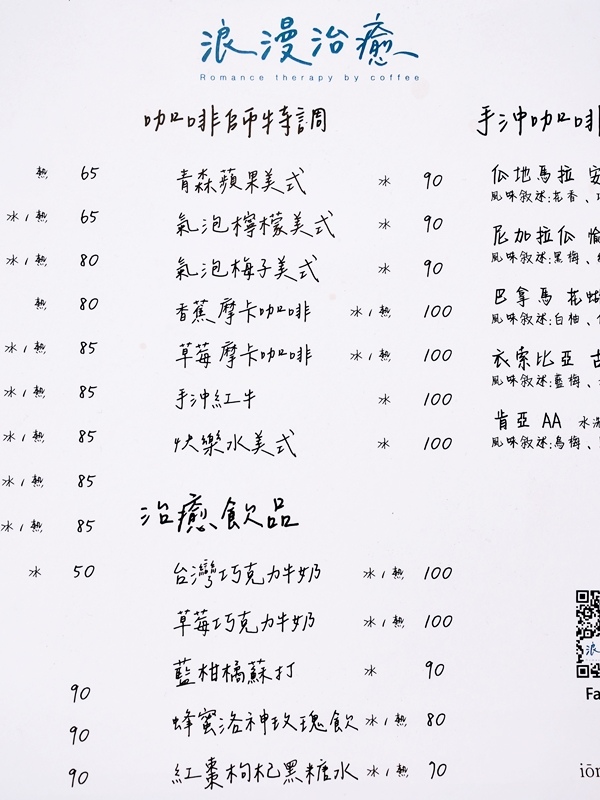 浪漫治癒
Romance therapy by coffee
熱 65
冰/熱 65
冰/熱 80
熱 80
冰/熱 85
冰/熱 85
冰/熱 85
冰/熱 85
冰/熱 85
冰 50
90
90
90
咖啡師特調
青森蘋果美式 冰 90
氣泡檸檬美式 冰 90
氣泡梅子美式 冰 90
香蕉摩卡咖啡 冰/熱 100
草莓摩卡咖啡 冰/熱 100
手沖紅牛 冰 100
快樂水美式 冰 100
治癒飲品
台灣巧克力牛奶 冰/熱 100
草莓巧克力牛奶 冰/熱 100
藍柑橘蘇打 冰 90
蜂蜜洛神玫瑰飲 冰/熱 80
紅棗枸杞黑糖水 冰/熱 70
手沖咖啡
瓜地馬拉
風味敘述:花香、
尼加拉瓜
風味敘述:黑梅、
巴拿馬 花蝴
風味敘述:白柚、
衣索比亞
風味敘述:藍莓、
肯亞 AA 水洗
風味敘述:烏梅、
浪
Fa